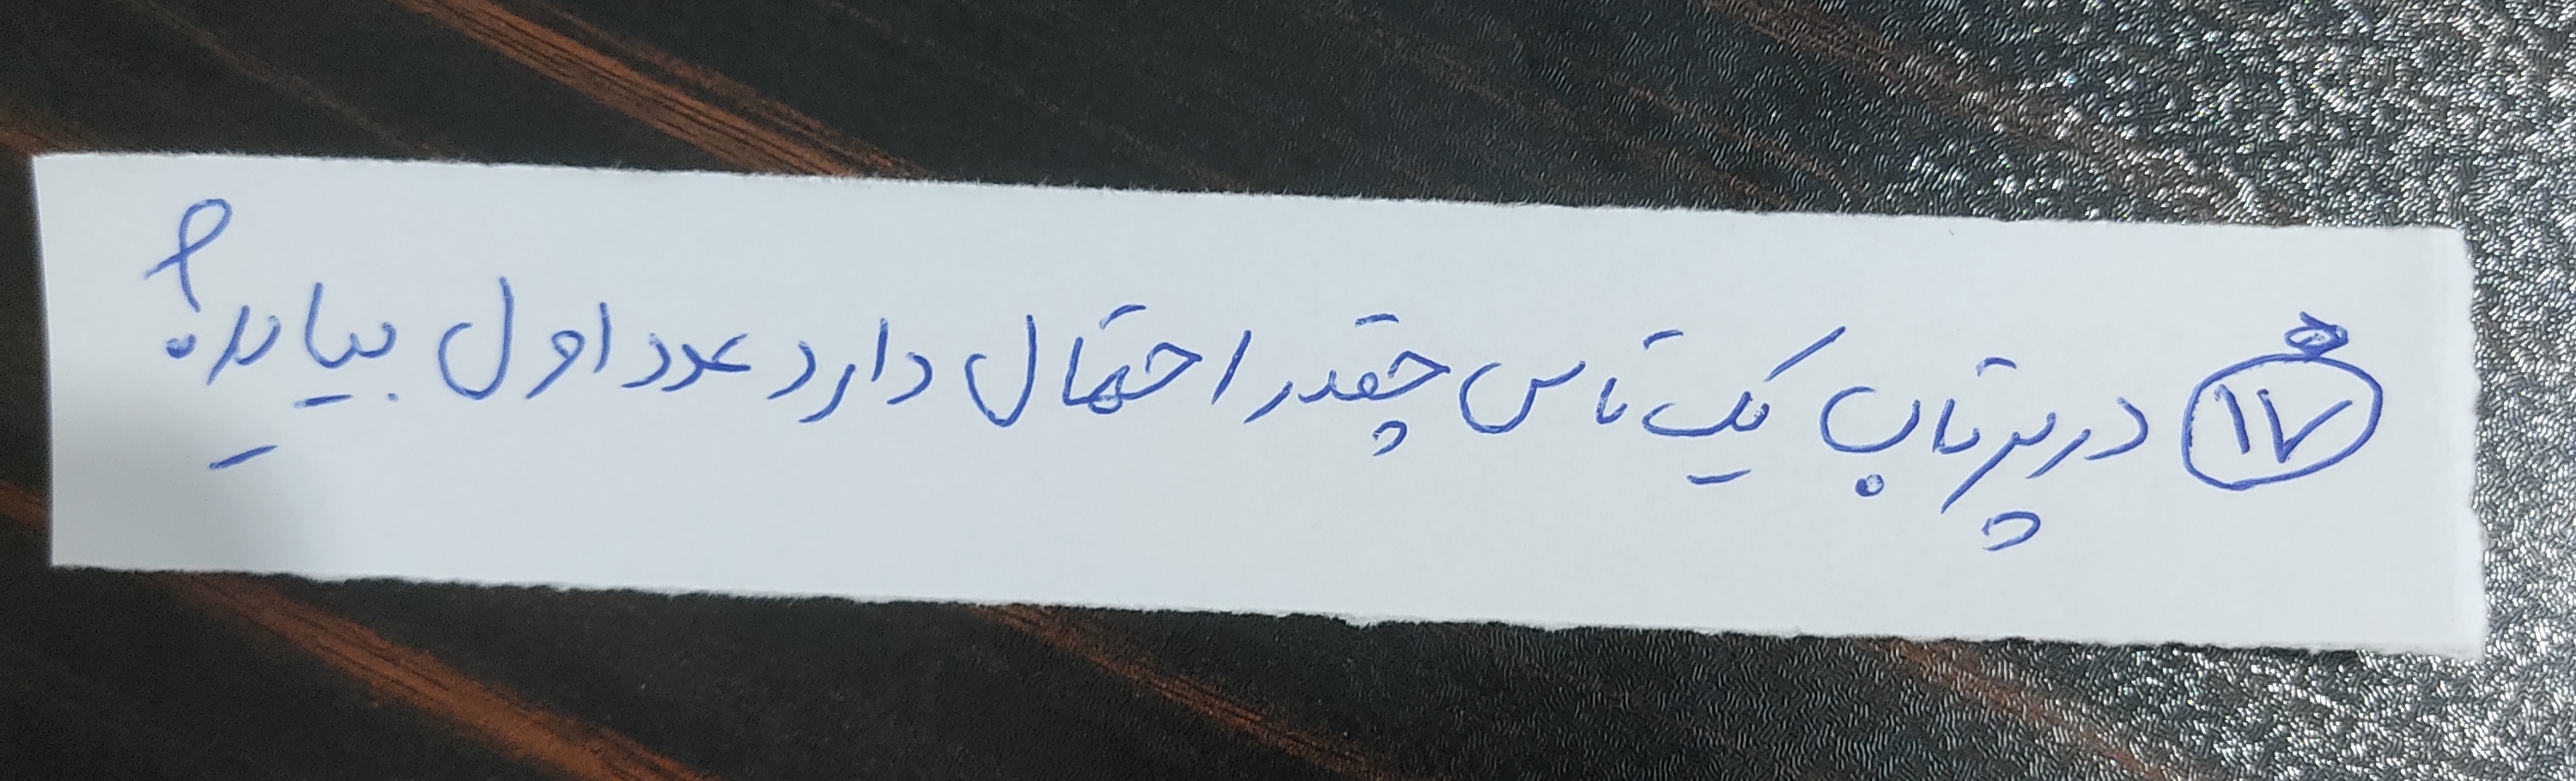 ۱۷ در پرتاب یک تاس چقدر احتمال دارد عدد اول بیاید؟